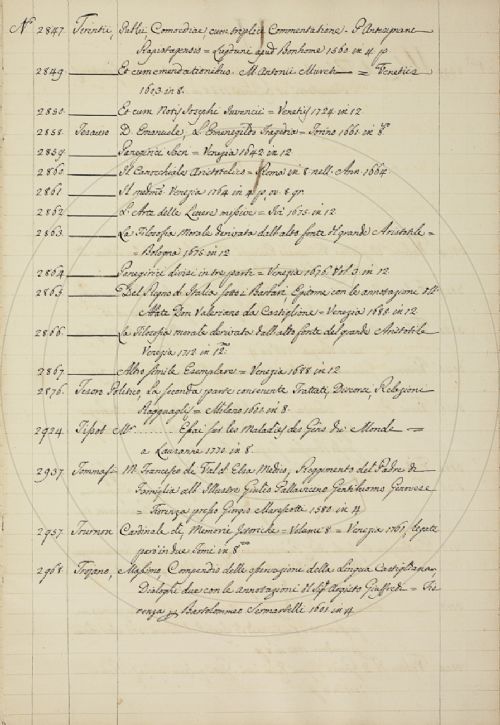 N.º 2847. Terentii, Publii Comoediae cum triplici Commentatione. P. Antesignani
Rapistagnensis = Lugduni apud Bonhome 1560 in 4. p.
2849. Et cum emendationibus. M. Antonii Mureti = Venetiis
1603 in 8.
2850. Et cum Notis Josephi Juvencii = Venetiis 1724 in 12
2858. Tesauro D. Emanuele, L'Emenegildo Tragedia = Torino 1661 in 8.
2859. Panegirici Sacri = Venezia 1642 in 12
2860. Il Canocchiale Aristotelico = Roma in 8. nell. Ann. 1664.
2861. Il medmo Venezia 1764 in 4. p. ou. 8. gr.
2862. L'Arte delle Lettere missive = Ivi 1675 in 12
2863. La Filosofia Morale derivata dall'alto fonte del grande Aristotile =
= Bologna 1675 in 12
2864. Panegirici divisi in tre parte = Venezia 1676. Vol. 3 in 12
2865. Del Regno d'Italia sotto i Barbari Epitome con le annotazione dell'
Abate Don Valeriano da Castiglione = Venezia 1680 in 12
2866. La Filosofia morale derivata dall'alto fonte del grande Aristotile
Venezia 1712 in 12.
2867. Altro simile Esemplare = Venezia 1688 in 12
2876. Tesoro Politico La seconda parte contenente Trattati, Discorsi, Relazione
Ragguagli = Milano 1601 in 8.
2924. Tissot Mr. Essai sur les Maladies des Gens du Monde =
a Lauzanne 1770 in 8.
2937. Tommasi M. Francesco da Val d'Elsa Medico, Reggimento del Padre di
Famiglia all'Illustre Giulio Pallavicino Gentiluomo Genovese
= Fiorenza presso Giorgio Marescotti 1580 in 4
2957. Tournon Cardinale di, Memorie Istoriche = Volume 8 = Venezia 1761, legati
però in due Tomi in 8.
2968. Trojano, Massimo Compendio delle osservazione della Lingua Castigliana,
Dialoghi due con le annotazioni del Sigr. Argisto Giuffredi = Fio-
renza p. Bartolommeo Sermartelli 1601 in 4